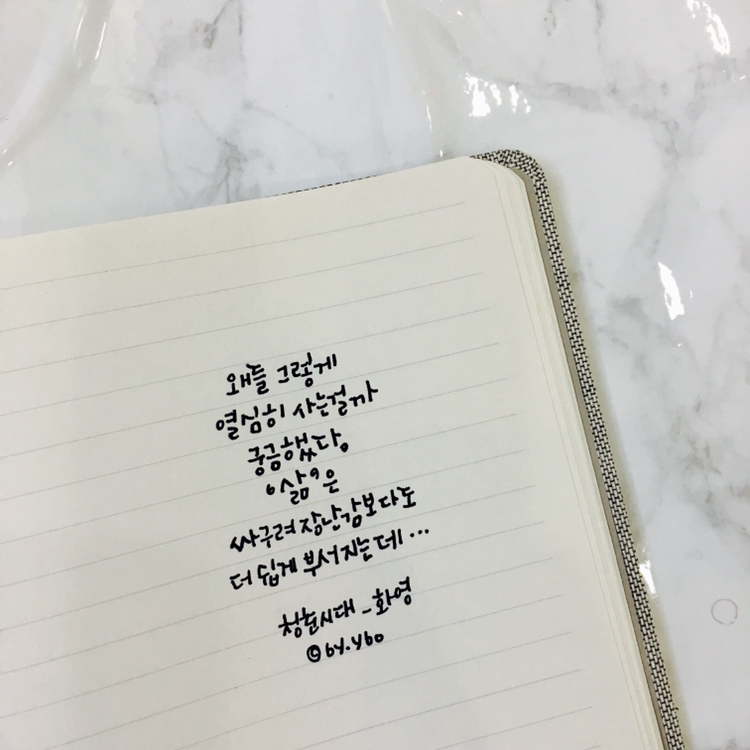 왜들 그렇게
열심히 사는걸까
궁금했다.
'삶'은
싸구려 장난감보다도
더 쉽게 부서지는데...
청춘시대_화영
©by.ybo